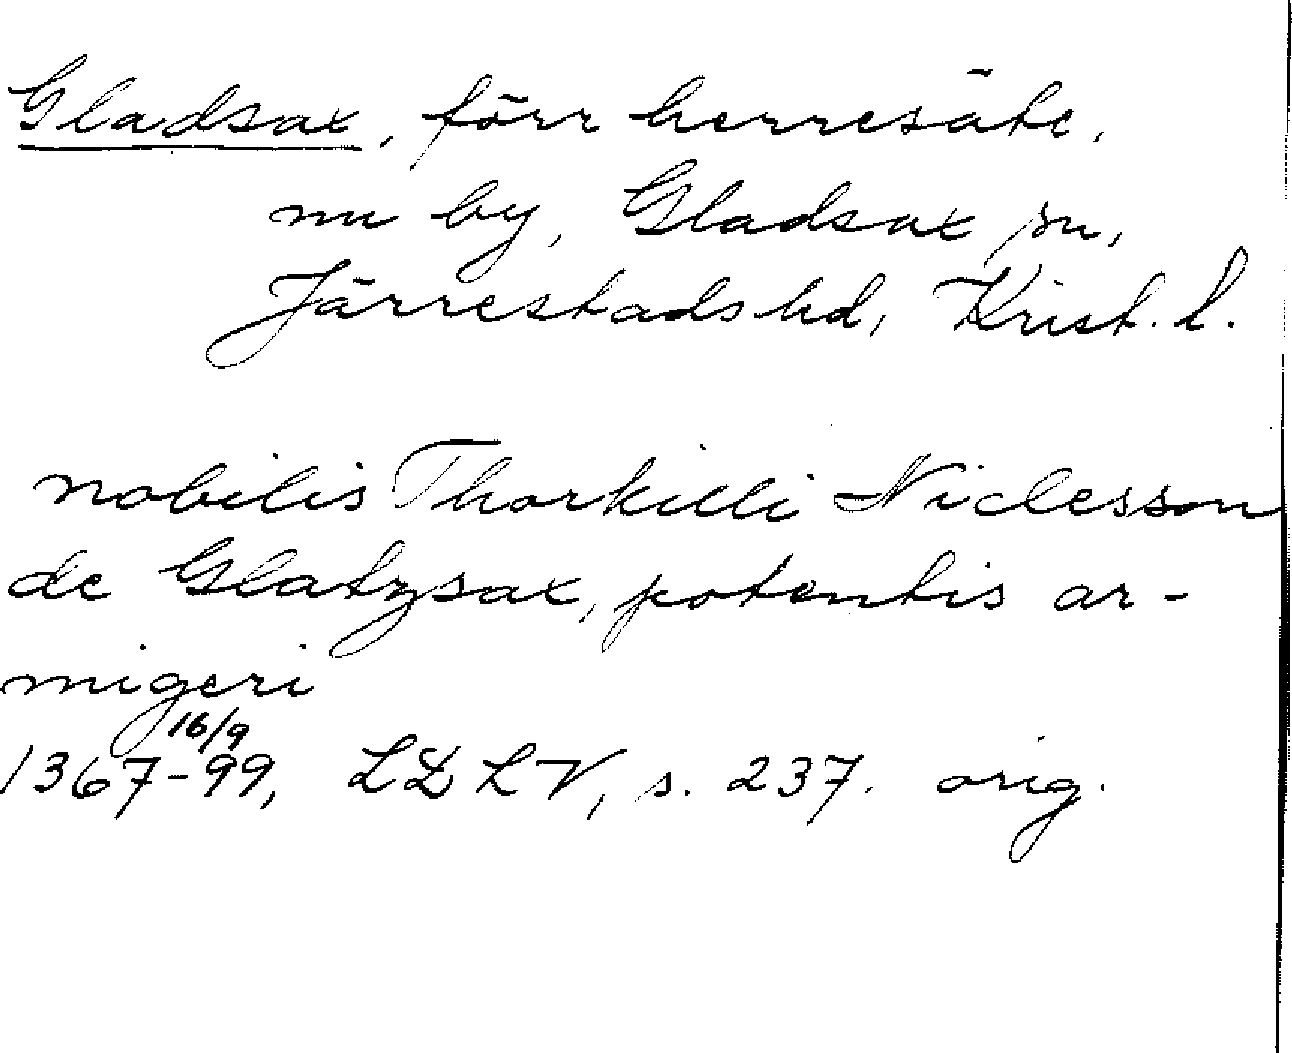 Gladsax, förr herresäte,
nu by, Gladsax sn,
Järrestads hd, Krist. l.
nobilis Thorkilli Niclesson
de Glatzsax, potentis ar-
migeri
16/9
1367-99, LDLV, s. 237. orig.